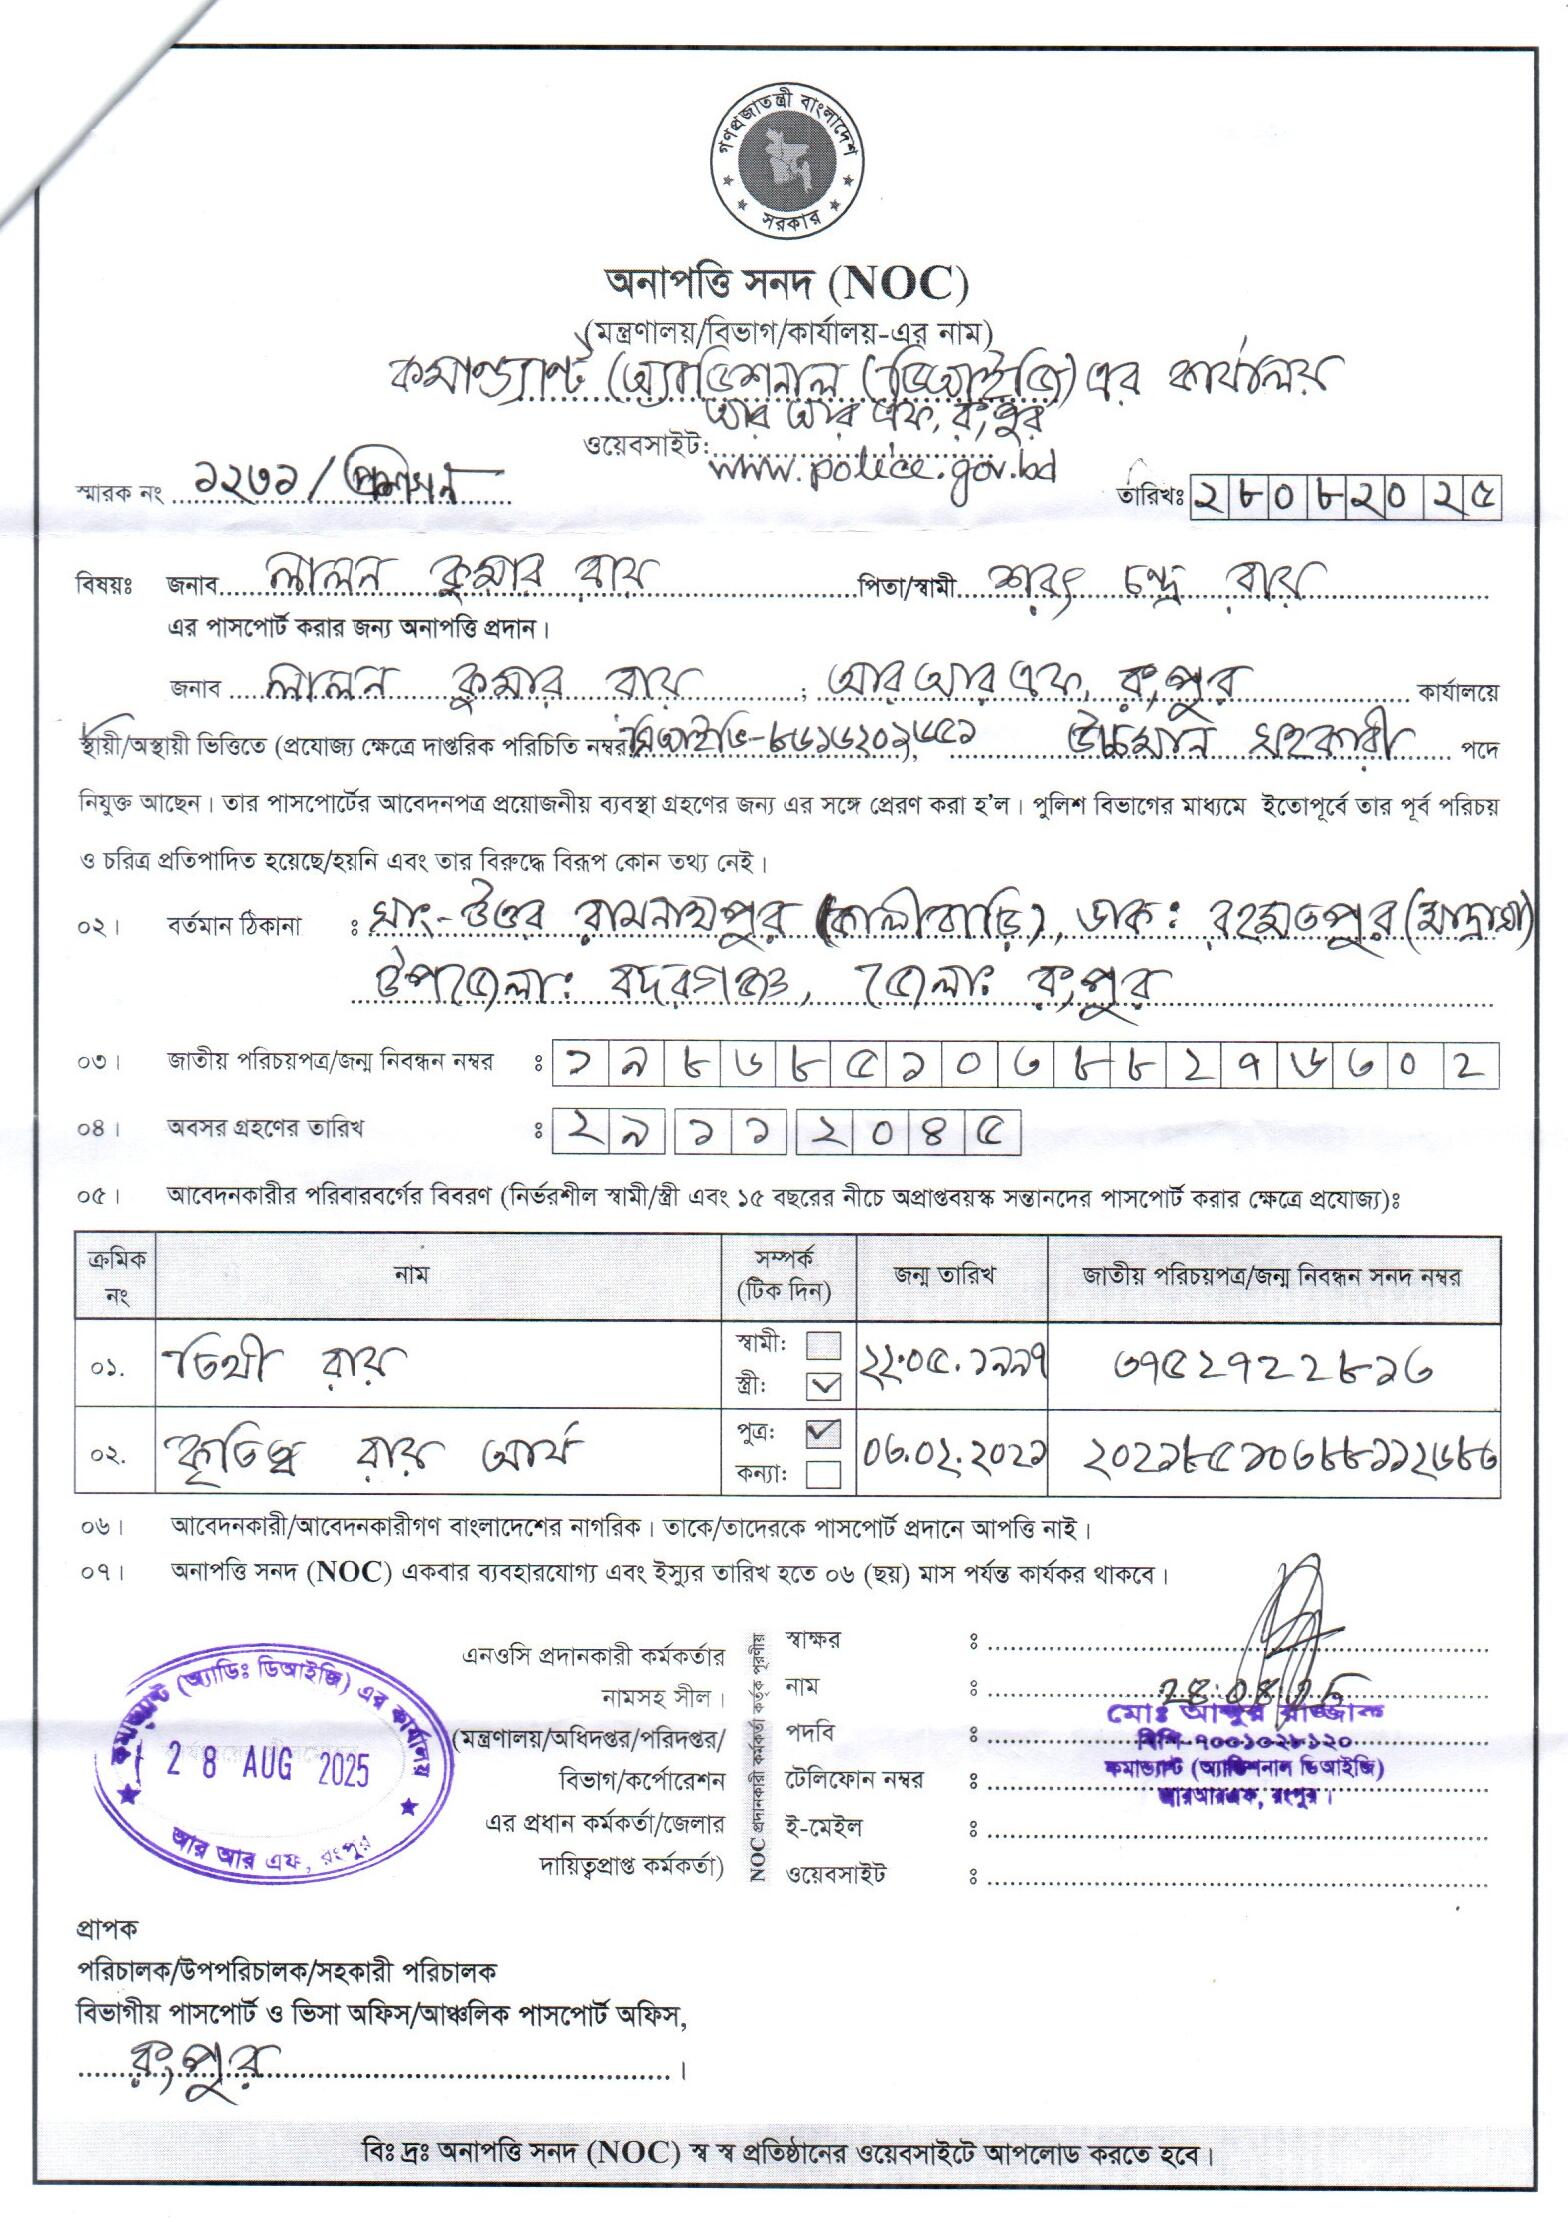 গণপ্রজাতন্ত্রী বাংলাদেশ
সরকার
অনাপত্তি সনদ (NOC)
(মন্ত্রণালয়/বিভাগ/কার্যালয়-এর নাম)
কমান্ড্যান্ট (অ্যাডিশনাল ডিআইজি) এর কার্যালয়
আর আর এফ, রংপুর
ওয়েবসাইট: www.police.gov.bd
স্মারক নং ১২৩১/প্রশাসন
তারিখঃ ২৮০৮২০২৫
বিষয়ঃ জনাব লালন কুমার রায় পিতা/স্বামী শরৎ চন্দ্র রায়
এর পাসপোর্ট করার জন্য অনাপত্তি প্রদান।
জনাব লালন কুমার রায় ; আর আর এফ, রংপুর কার্যালয়ে
স্থায়ী/অস্থায়ী ভিত্তিতে (প্রযোজ্য ক্ষেত্রে দাপ্তরিক পরিচিতি নম্বর বিআইভি-৮৬১৬২০১৬৫১), উচ্চমান সহকারী পদে
নিযুক্ত আছেন। তার পাসপোর্টের আবেদনপত্র প্রয়োজনীয় ব্যবস্থা গ্রহণের জন্য এর সঙ্গে প্রেরণ করা হ'ল। পুলিশ বিভাগের মাধ্যমে ইতোপূর্বে তার পূর্ব পরিচয়
ও চরিত্র প্রতিপাদিত হয়েছে/হয়নি এবং তার বিরুদ্ধে বিরূপ কোন তথ্য নেই।
০২। বর্তমান ঠিকানা : সাং-উত্তর রামনাথপুর (কালীবাড়ি), ডাক: রহমতপুর (মাদ্রাসা)
উপজেলা: বদরগঞ্জ, জেলা: রংপুর
০৩। জাতীয় পরিচয়পত্র/জন্ম নিবন্ধন নম্বর : ১৯৮৬৮৫১০৩৮৮২৭৬৩০২
০৪। অবসর গ্রহণের তারিখ : ২৯ ১১ ২০৪৫
০৫। আবেদনকারীর পরিবারবর্গের বিবরণ (নির্ভরশীল স্বামী/স্ত্রী এবং ১৫ বছরের নীচে অপ্রাপ্তবয়স্ক সন্তানদের পাসপোর্ট করার ক্ষেত্রে প্রযোজ্য)ঃ
ক্রমিক নং নাম সম্পর্ক (টিক দিন) জন্ম তারিখ জাতীয় পরিচয়পত্র/জন্ম নিবন্ধন সনদ নম্বর
০১. তিথী রায় স্বামী: স্ত্রী: ✓ ২২.০৫.১৯৯৭ ৩৭৫২৭২২৮১৩
০২. কৃতিত্ব রায় আর্য পুত্র: ✓ কন্যা: ০৩.০২.২০২১ ২০২১৮৫১০৩৮৮১১২৬৮৬
০৬। আবেদনকারী/আবেদনকারীগণ বাংলাদেশের নাগরিক। তাকে/তাদেরকে পাসপোর্ট প্রদানে আপত্তি নাই।
০৭। অনাপত্তি সনদ (NOC) একবার ব্যবহারযোগ্য এবং ইস্যুর তারিখ হতে ০৬ (ছয়) মাস পর্যন্ত কার্যকর থাকবে।
কমান্ড্যান্ট (অ্যাডিঃ ডিআইজি) এর কার্যালয়
28 AUG 2025
আর আর এফ, রংপুর
এনওসি প্রদানকারী কর্মকর্তার
নামসহ সীল।
(মন্ত্রণালয়/অধিদপ্তর/পরিদপ্তর/
বিভাগ/কর্পোরেশন
এর প্রধান কর্মকর্তা/জেলার
দায়িত্বপ্রাপ্ত কর্মকর্তা)
NOC প্রদানকারী কর্মকর্তা কর্তৃক পূরণীয়
স্বাক্ষর :
নাম : 28.08.25
পদবি :
টেলিফোন নম্বর :
ই-মেইল :
ওয়েবসাইট :
মোঃ আব্দুর রাজ্জাক
বিপি-৭০০১০২৮১২০
কমান্ড্যান্ট (অ্যাডিশনাল ডিআইজি)
আরআরএফ, রংপুর।
প্রাপক
পরিচালক/উপপরিচালক/সহকারী পরিচালক
বিভাগীয় পাসপোর্ট ও ভিসা অফিস/আঞ্চলিক পাসপোর্ট অফিস,
রংপুর।
বিঃ দ্রঃ অনাপত্তি সনদ (NOC) স্ব স্ব প্রতিষ্ঠানের ওয়েবসাইটে আপলোড করতে হবে।